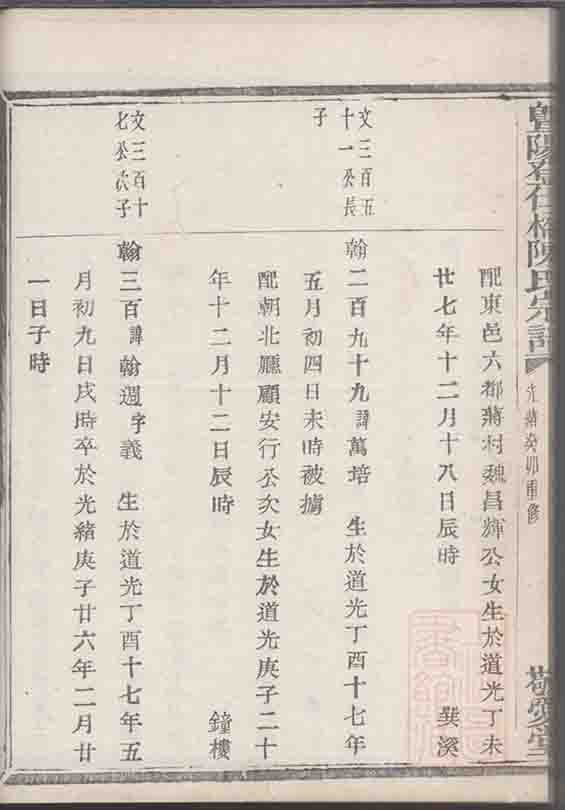 暨陽登仕橋陳氏宗譜
光緒癸卯重修
敬愛堂
配東邑六都蔣村魏昌輝公女生於道光丁未
廿七年十二月十八日辰時 巽溪
文三百五
十一公長
子
翰二百九十九諱萬培 生於道光丁酉十七年
五月初四日未時被擄
配朝北廳顧安行公次女生於道光庚子二十
年十二月十二日辰時 鐘樓
文三百十
七公次子
翰三百諱翰週字義 生於道光丁酉十七年五
月初九日戌時卒於光緒庚子廿六年二月廿
一日子時